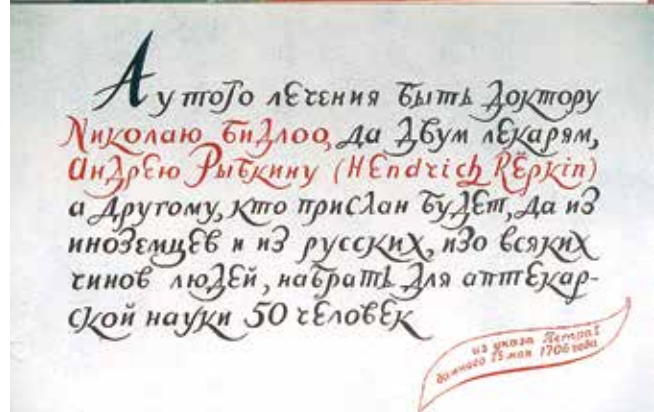 А у того лечения быть доктору
Николаю Бидлоо, да двум лекарям,
Андрею Рыбкину (HEndrich RËpkin)
а другому, кто прислан будет, да из
иноземцев и из русских, изо всяких
чинов людей, набрать для аптекар-
ской науки 50 человек
из указа Петра I
данного 25 мая 1706 года